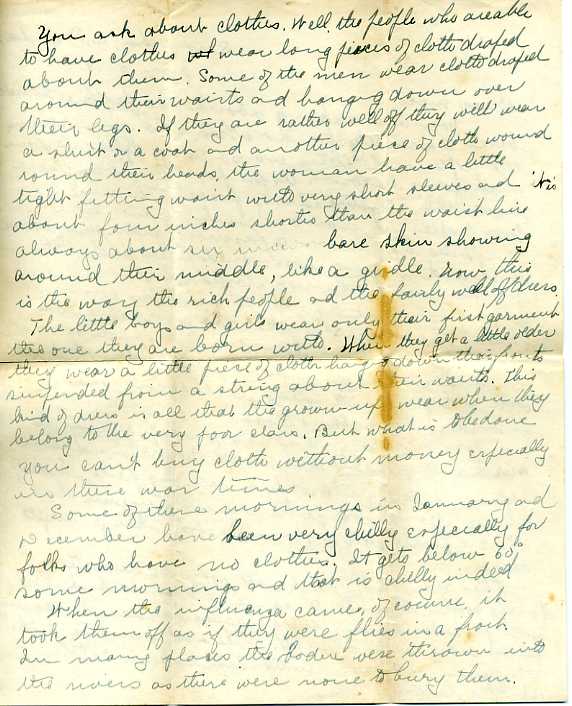 You ask about clothes. Well, the people who are able
to have clothes wear long pieces of cloth draped
about them. Some of the men wear cloth draped
around their waists and hanging down over
their legs. If they are rather well off they will wear
a shirt or a coat and another piece of cloth wound
round their heads, the woman have a little
tight fitting waist with very short sleeves and 'tis
about four inches shorter than the waist line
always about six inches bare skin showing
around their middle, like a girdle. Now this
is the way the rich people ad the fairly well off dress
The little boys and girls wear only their first garment
the one they are born with. When they get a little older
they wear a little piece of cloth hang down their fronts
suspended from a string about their waists. This
kind of dress is all that the grown-ups wear when they
belong to the very poor class. But what is to be done
you can't buy cloth without money especially
in these war times
Some of these mornings in January ad
December have been very chilly especially for
folks who have no clothes. It gets below 60°
some mornings and that is chilly indeed
When the influenza came, of course, it
took them off as if they were flies in a frost.
In many places the bodies were thrown into
the rivers as there were none to bury them.